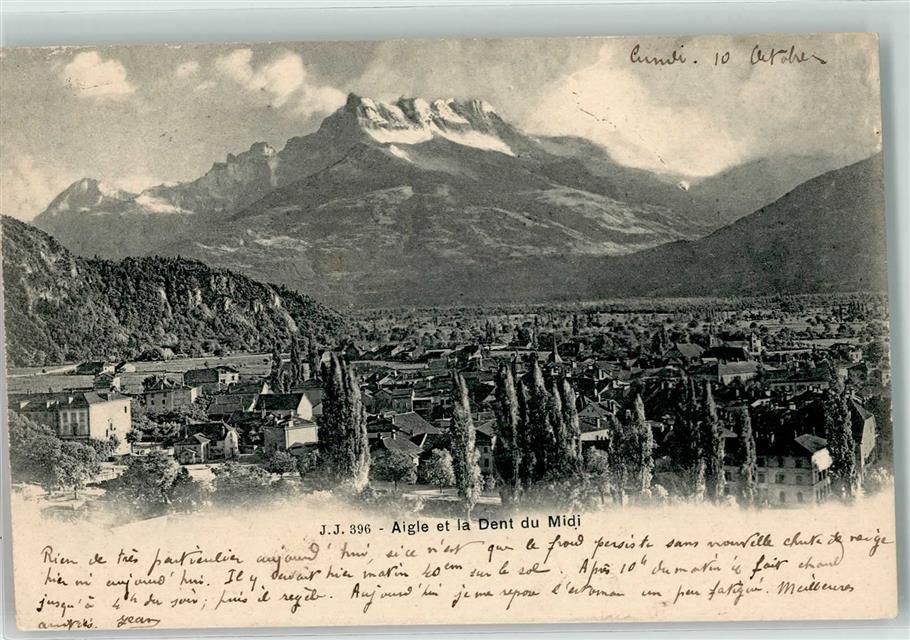 Lundi. 10 Octobre
J.J. 396 - Aigle et la Dent du Midi
Rien de très particulier aujourd'hui, si ce n'est que le froid persiste sans nouvelle chute de neige
hier ni aujourd'hui. Il y avait hier matin 40cm sur le sol. Après 10h du matin il fait chaud
jusqu'à 4h du soir; puis il regèle. Aujourd'hui je me repose l'estomac un peu fatigué. Meilleures
amitiés. Jean